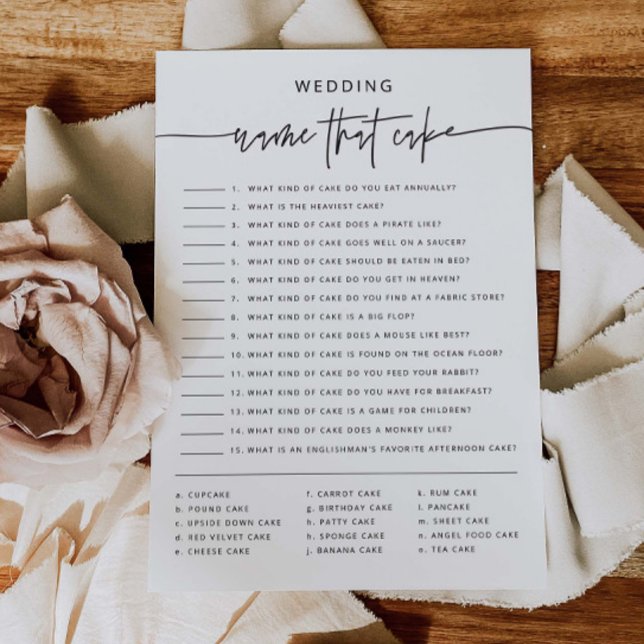 WEDDING
name that cake
1. WHAT KIND OF CAKE DO YOU EAT ANNUALLY?
2. WHAT IS THE HEAVIEST CAKE?
3. WHAT KIND OF CAKE DOES A PIRATE LIKE?
4. WHAT KIND OF CAKE GOES WELL ON A SAUCER?
5. WHAT KIND OF CAKE SHOULD BE EATEN IN BED?
6. WHAT KIND OF CAKE DO YOU GET IN HEAVEN?
7. WHAT KIND OF CAKE DO YOU FIND AT A FABRIC STORE?
8. WHAT KIND OF CAKE IS A BIG FLOP?
9. WHAT KIND OF CAKE DOES A MOUSE LIKE BEST?
10. WHAT KIND OF CAKE IS FOUND ON THE OCEAN FLOOR?
11. WHAT KIND OF CAKE DO YOU FEED YOUR RABBIT?
12. WHAT KIND OF CAKE DO YOU HAVE FOR BREAKFAST?
13. WHAT KIND OF CAKE IS A GAME FOR CHILDREN?
14. WHAT KIND OF CAKE DOES A MONKEY LIKE?
15. WHAT IS AN ENGLISHMAN'S FAVORITE AFTERNOON CAKE?
a. CUPCAKE
b. POUND CAKE
c. UPSIDE DOWN CAKE
d. RED VELVET CAKE
e. CHEESE CAKE
f. CARROT CAKE
g. BIRTHDAY CAKE
h. PATTY CAKE
h. SPONGE CAKE
j. BANANA CAKE
k. RUM CAKE
l. PANCAKE
m. SHEET CAKE
n. ANGEL FOOD CAKE
o. TEA CAKE